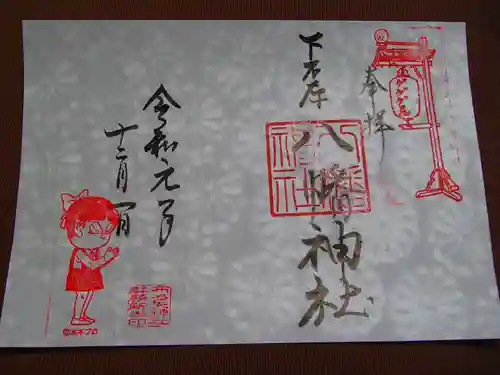 奉拝
下石原
八幡神社
令和元年
十二月一日
八幡
神社
©水木プロ